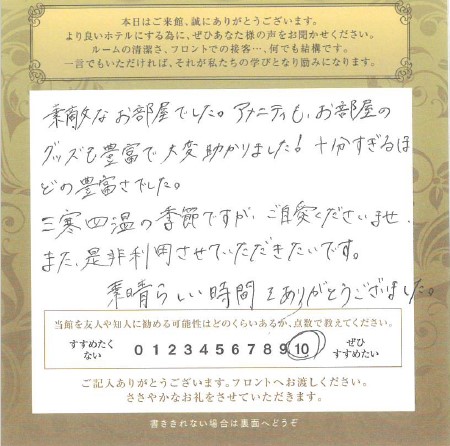 本日はご来館、誠にありがとうございます。
より良いホテルにする為に、ぜひあなた様の声をお聞かせください。
ルームの清潔さ、フロントでの接客…、何でも結構です。
一言でもいただければ、それが私たちの学びとなり励みになります。
素敵なお部屋でした。アメニティも、お部屋の
グッズも豊富で大変助かりました！十分すぎるほ
どの豊富さでした。
三寒四温の季節ですが、ご自愛くださいませ。
また、是非利用させていただきたいです。
素晴らしい時間をありがとうございました。
当館を友人や知人に勧める可能性はどのくらいあるか、点数で教えてください。
すすめたくない 0 1 2 3 4 5 6 7 8 9 10 ぜひすすめたい
ご記入ありがとうございます。フロントへお渡しください。
ささやかなお礼をさせていただきます。
書ききれない場合は裏面へどうぞ